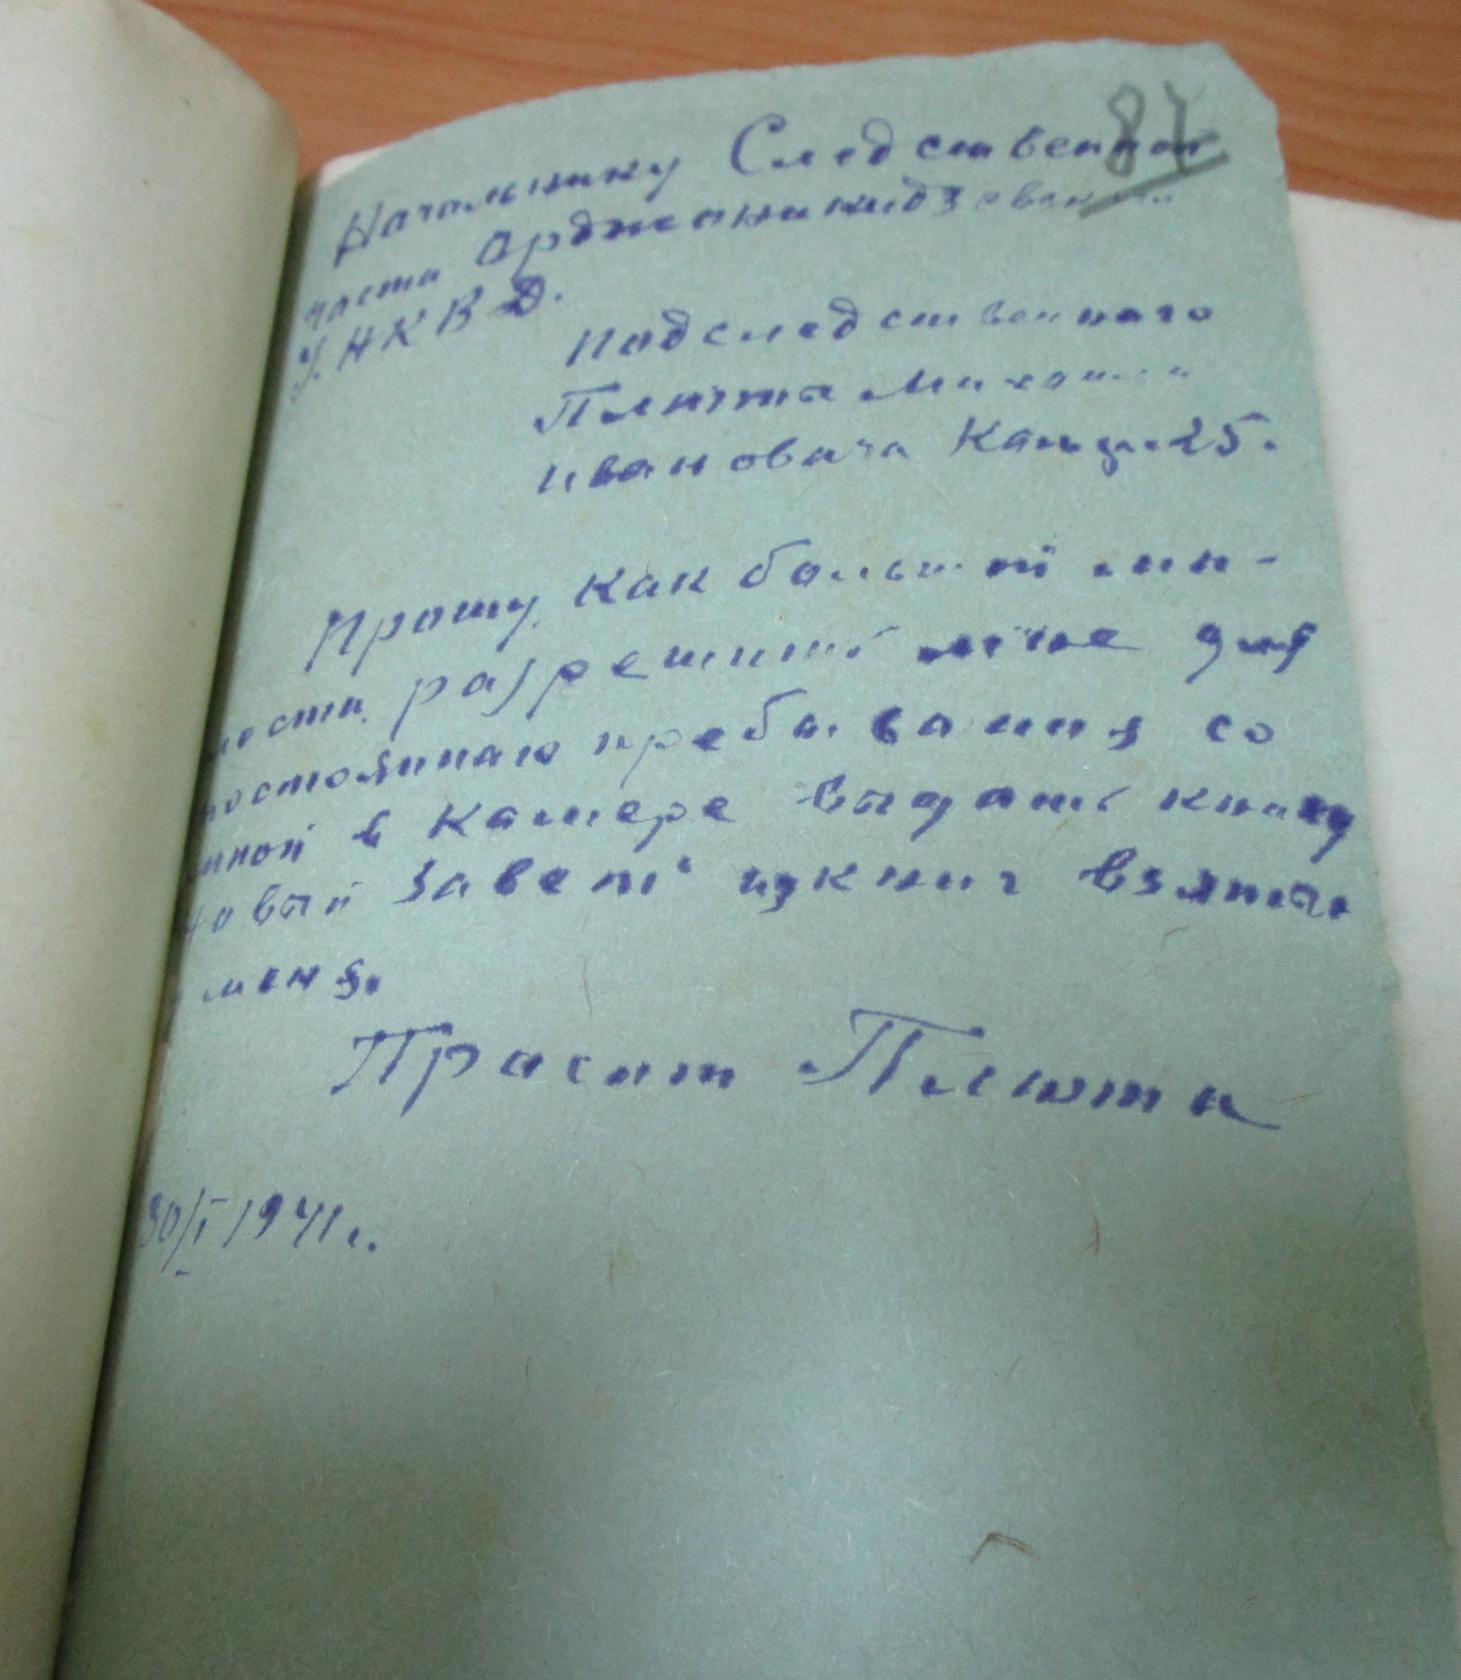 87
Начальнику Следственной
части Орджоникидзевского
УНКВД.
подследственного
Плюта Михаила
Ивановича
Прошу, как большой ми-
лости, разрешить мне для
постоянного пребывания со
мной в камере выдать книгу
Новый Завет из книг взятых
у меня.
Прасит Плюта
30/I 1941г.